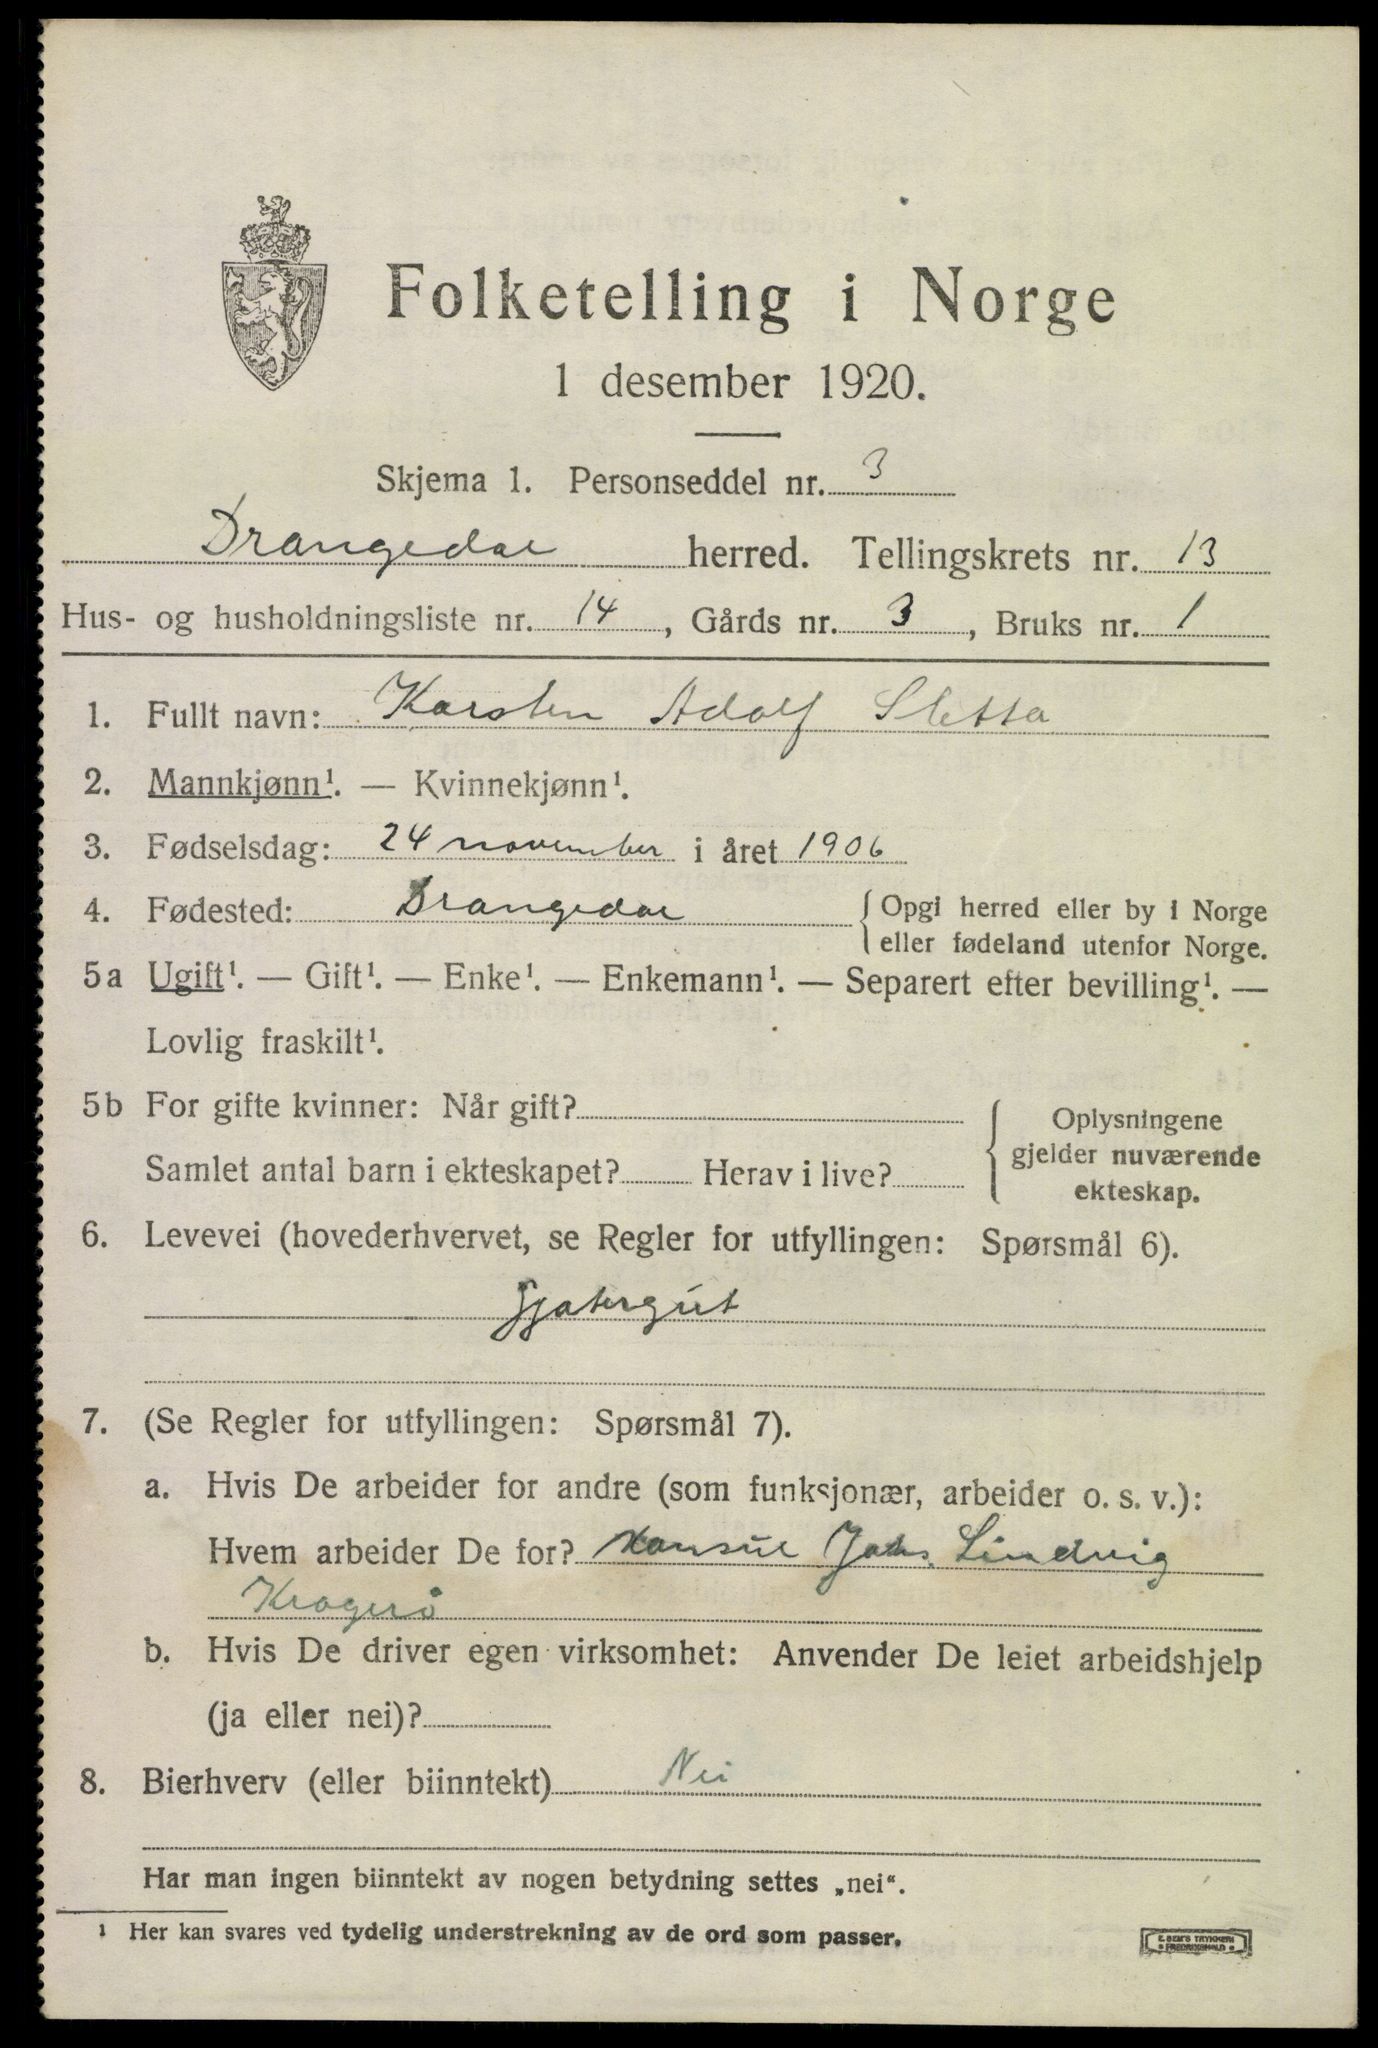 Folketelling i Norge
1 desember 1920.
Skjema 1. Personseddel nr. 3
Drangedal herred. Tellingskrets nr. 13
Hus- og husholdningsliste nr. 14, Gårds nr. 3, Bruks nr. 1
1. Fullt navn: Karsten Adolf Sletta
2. Mannkjønn¹. — Kvinnekjønn¹.
3. Fødselsdag: 24 november i året 1906
4. Fødested: Drangedal { Opgi herred eller by i Norge
eller fødeland utenfor Norge.
5a Ugift¹. — Gift¹. — Enke¹. — Enkemann¹. — Separert efter bevilling¹. —
Lovlig fraskilt¹.
5b For gifte kvinner: Når gift?
Samlet antal barn i ekteskapet? Herav i live?
{ Oplysningene
gjelder nuværende
ekteskap.
6. Levevei (hovederhvervet, se Regler for utfyllingen: Spørsmål 6).
Gjætergut
7. (Se Regler for utfyllingen: Spørsmål 7).
a. Hvis De arbeider for andre (som funksjonær, arbeider o. s. v.):
Hvem arbeider De for? Konsul Johs. Lindvig
Kragerö
b. Hvis De driver egen virksomhet: Anvender De leiet arbeidshjelp
(ja eller nei)?
8. Bierhverv (eller biinntekt) Nei
Har man ingen biinntekt av nogen betydning settes „nei“.
¹ Her kan svares ved tydelig understrekning av de ord som passer.
E. SEM'S TRYKKERI
FREDRIKSHALD